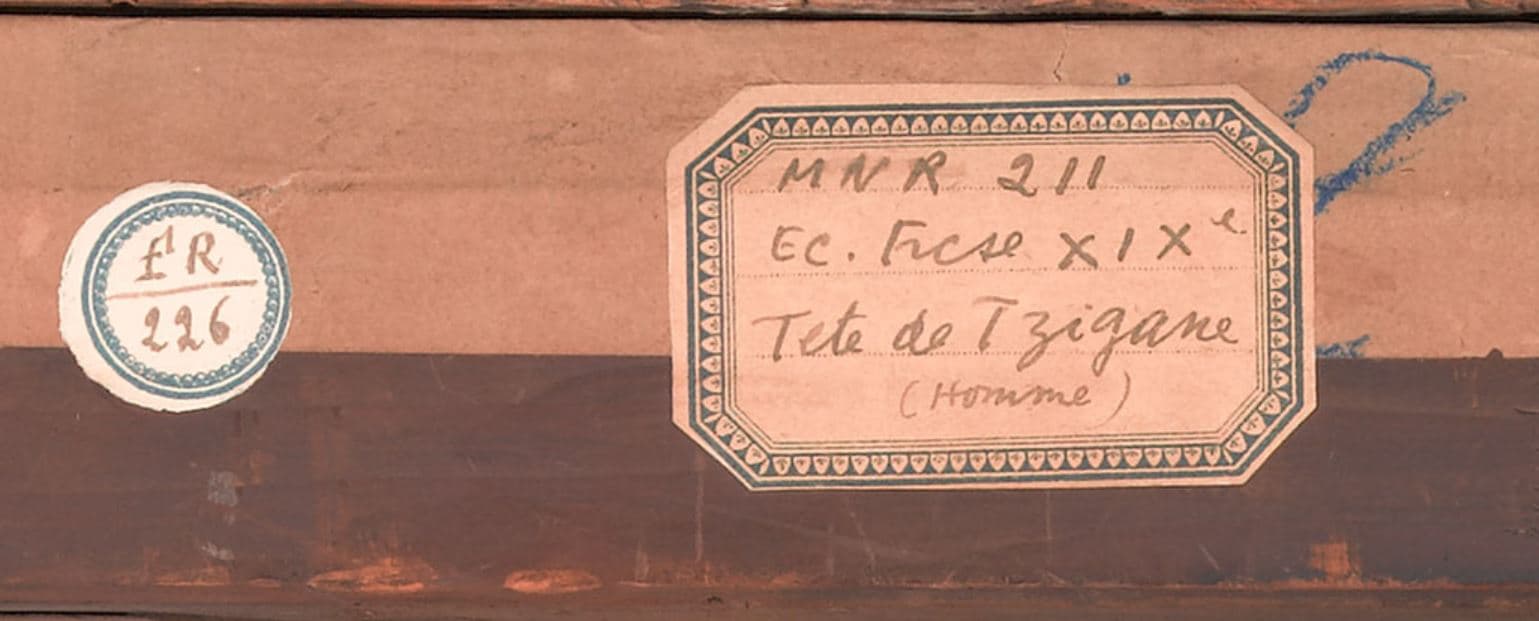 ER
226
MNR 211
EC. Frcse XIXe
Tete de Tzigane
(Homme)
2